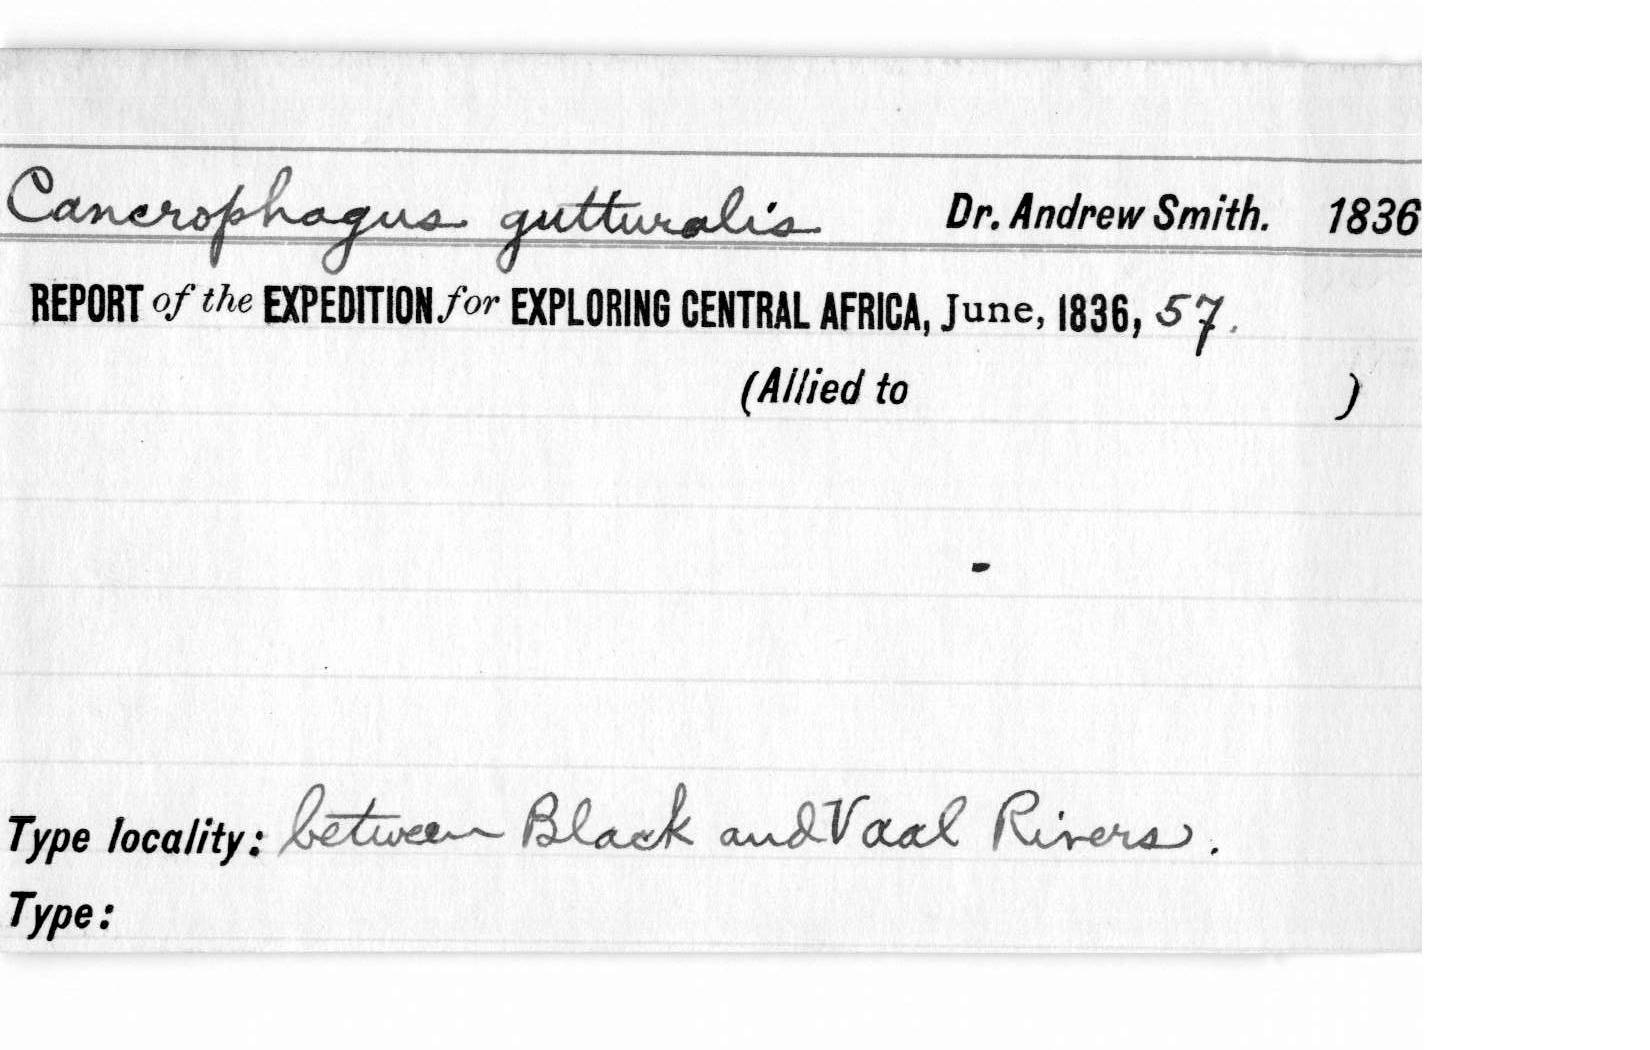 Cancrophagus gutturalis Dr. Andrew Smith. 1836
REPORT of the EXPEDITION for EXPLORING CENTRAL AFRICA, June, 1836, 57.
(Allied to )
Type locality: between Black and Vaal Rivers.
Type: